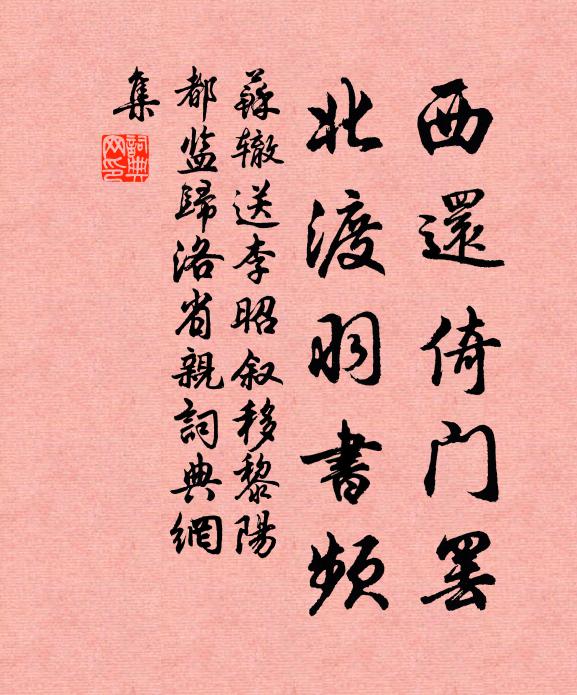 西還倚门罢
北渡羽書頻
蘇辙送李昭叙移黎陽
都监歸洛省親詞典網
集
詞典
网印